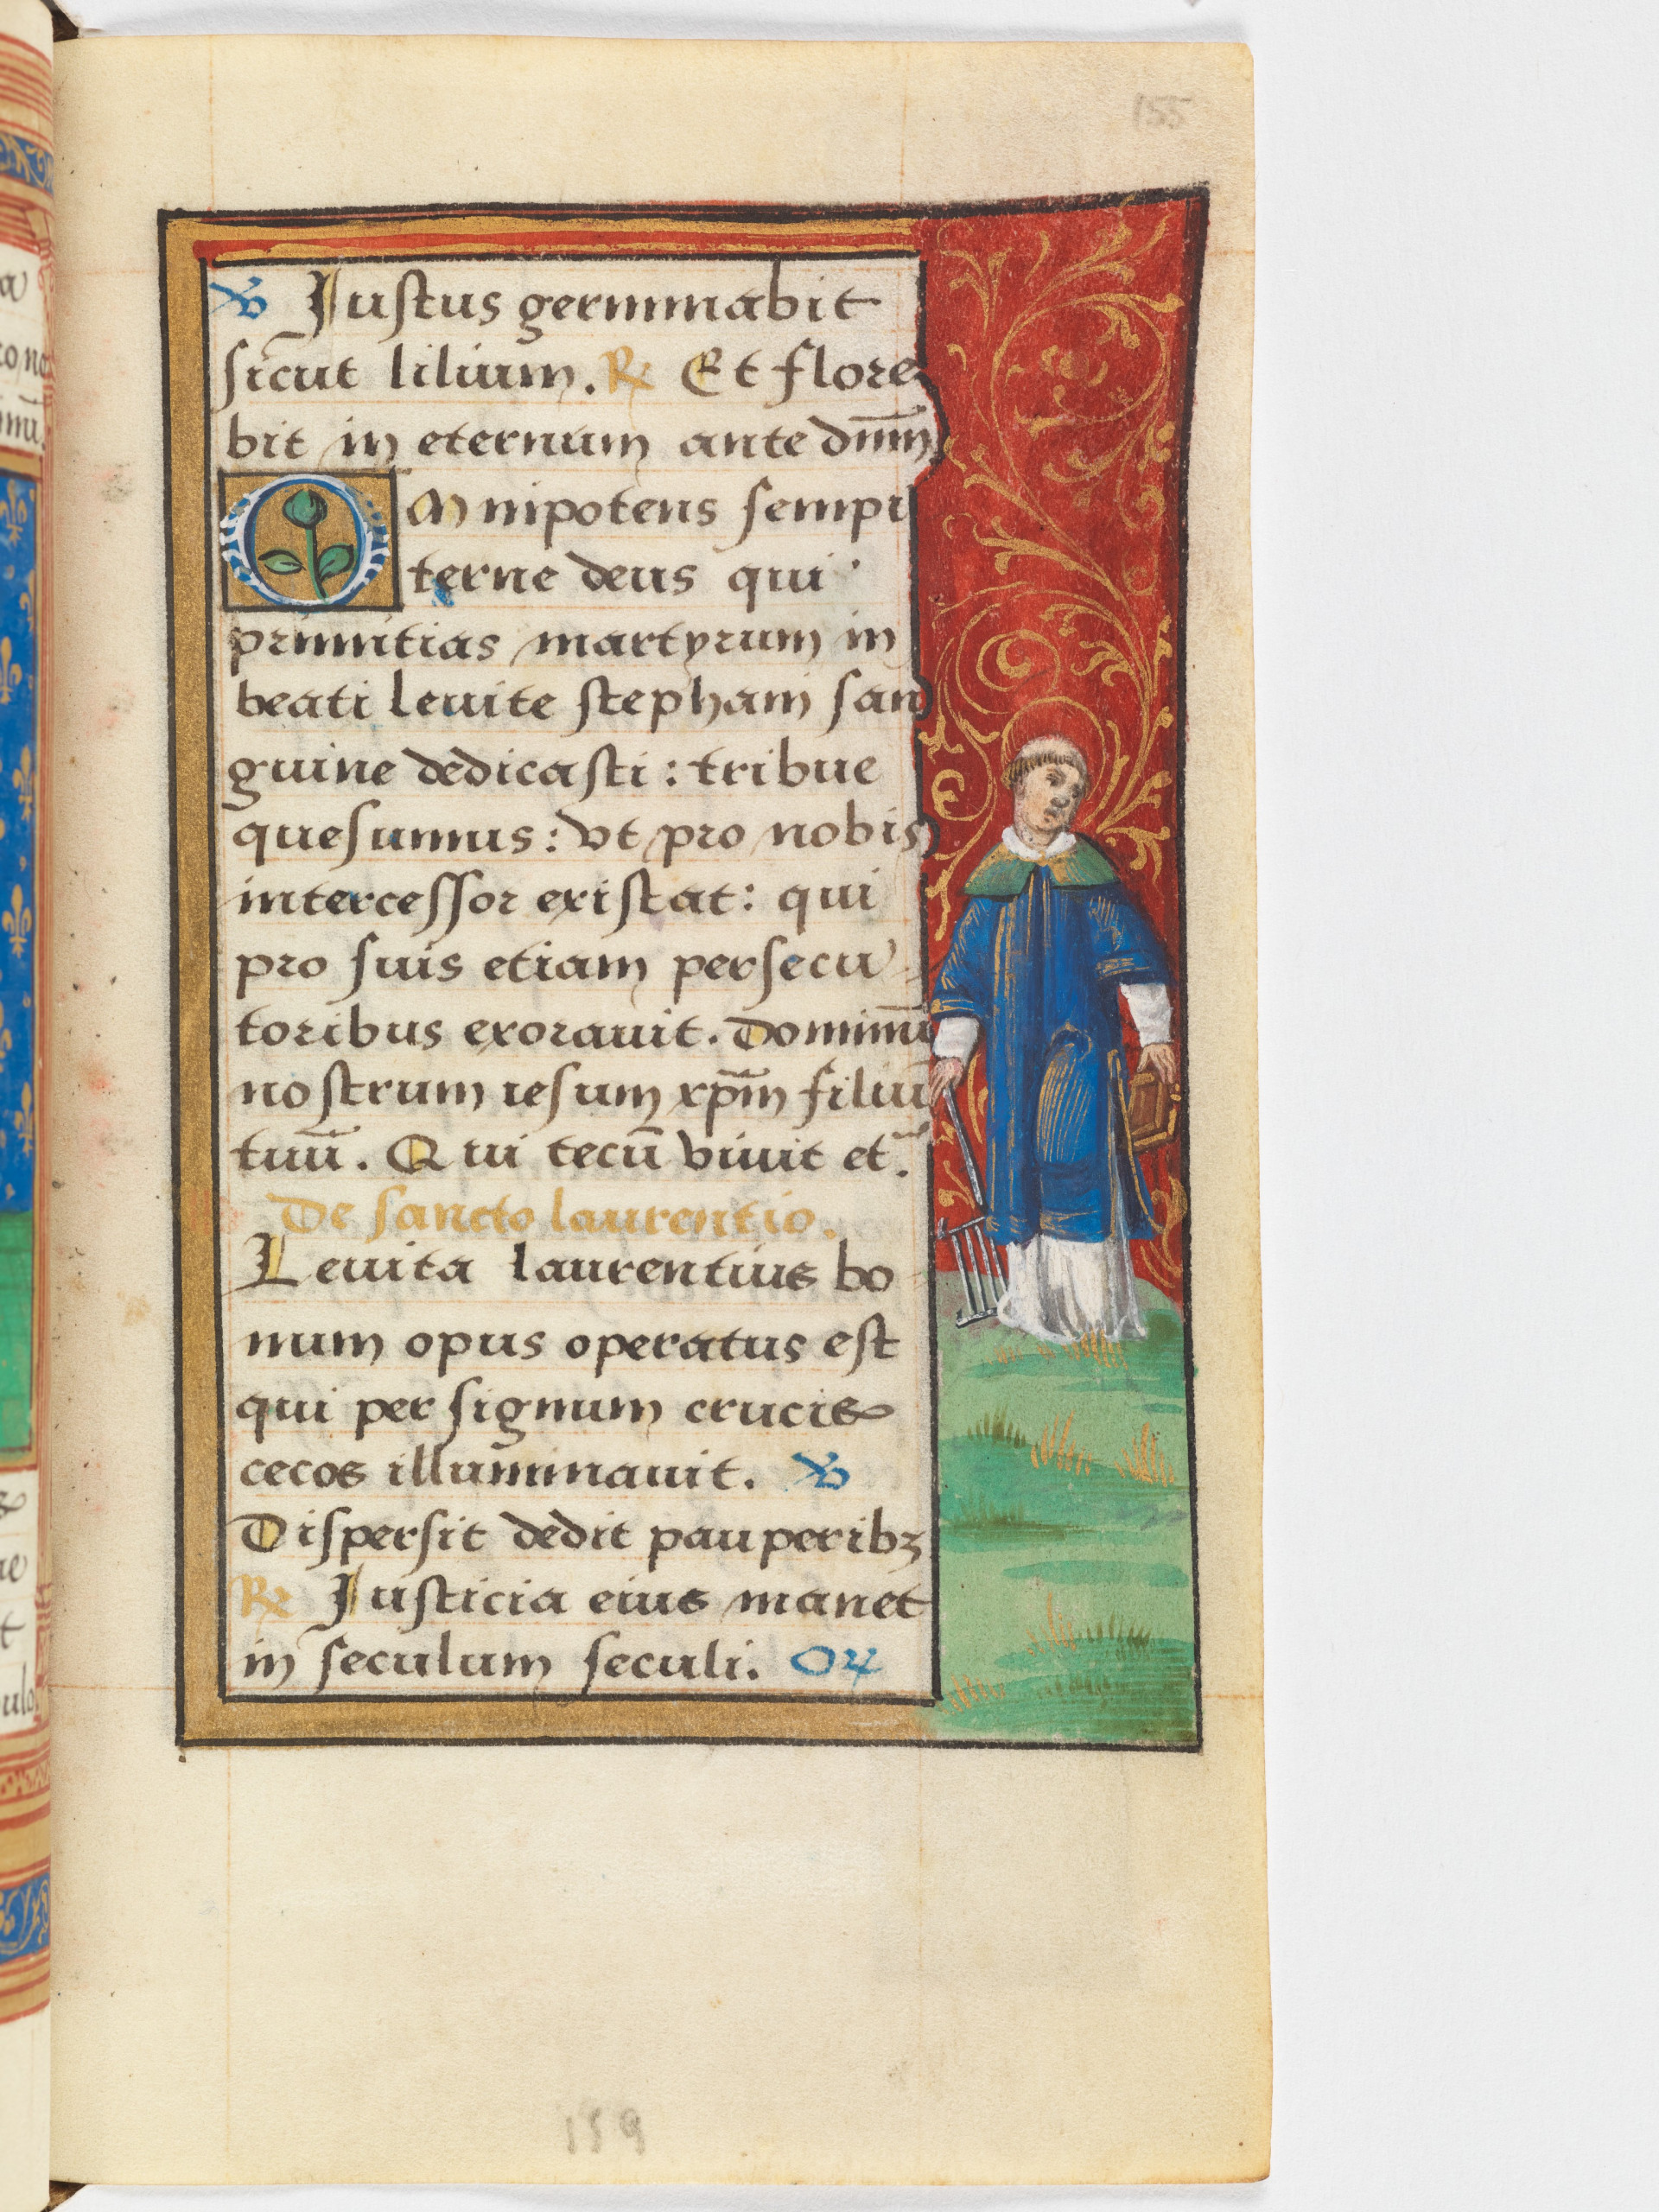 155
℣ Justus germinabit
sicut lilium. ℟ Et flore
bit in eternum ante dn̄m
Omnipotens sempi
terne deus qui
primitias martyrum in
beati leuite stephani san
guine dedicasti : tribue
quesumus : vt pro nobis
intercessor existat : qui
pro suis etiam persecu
toribus exorauit. Dominū
nostrum iesum xp̄m filiū
tuū. Qui tecū viuit et.
De sancto laurentio.
Leuita laurentius bo
num opus operatus est
qui per signum crucis
cecos illuminauit. ℣
Dispersit dedit pauperibꝫ
℟ Justicia eius manet
in seculum seculi. Or
159